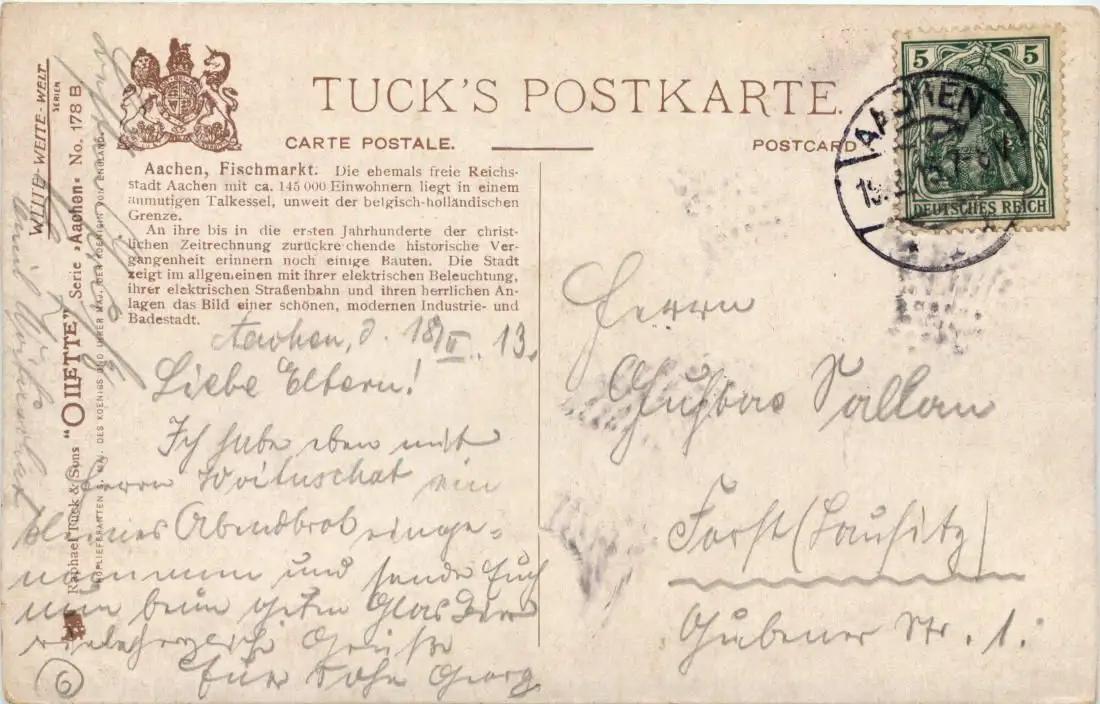 TUCK'S POSTKARTE.
CARTE POSTALE.
POSTCARD
WEITE-WEITE-WELT
SERIEN
Raphael Tuck & Sons "OILETTE" Serie »Aachen« No. 178 B
HOFLIEFERANTEN S. MAJ. DES KOENIGS UND IHRER MAJ. DER KOENIGIN VON ENGLAND.
Aachen, Fischmarkt. Die ehemals freie Reichs-
stadt Aachen mit ca. 145 000 Einwohnern liegt in einem
anmutigen Talkessel, unweit der belgisch-holländischen
Grenze.
An ihre bis in die ersten Jahrhunderte der christ-
lichen Zeitrechnung zurückreichende historische Ver-
gangenheit erinnern noch einige Bauten. Die Stadt
zeigt im allgemeinen mit ihrer elektrischen Beleuchtung,
ihrer elektrischen Straßenbahn und ihren herrlichen An-
lagen das Bild einer schönen, modernen Industrie- und
Badestadt.
5 5
DEUTSCHES REICH
AACHEN
Aachen, d. 18/II. 13.
Liebe Eltern!
Ich habe eben mit
Herrn Woituschat ein
kleines Abendbrot einge-
nommen und sende Euch
nun beim guten Glas Bier
viele herzliche Grüße
Euer Sohn Georg
Herrn
Gustav Sallan
Forst (Lausitz)
Gubener Str. 1.
6